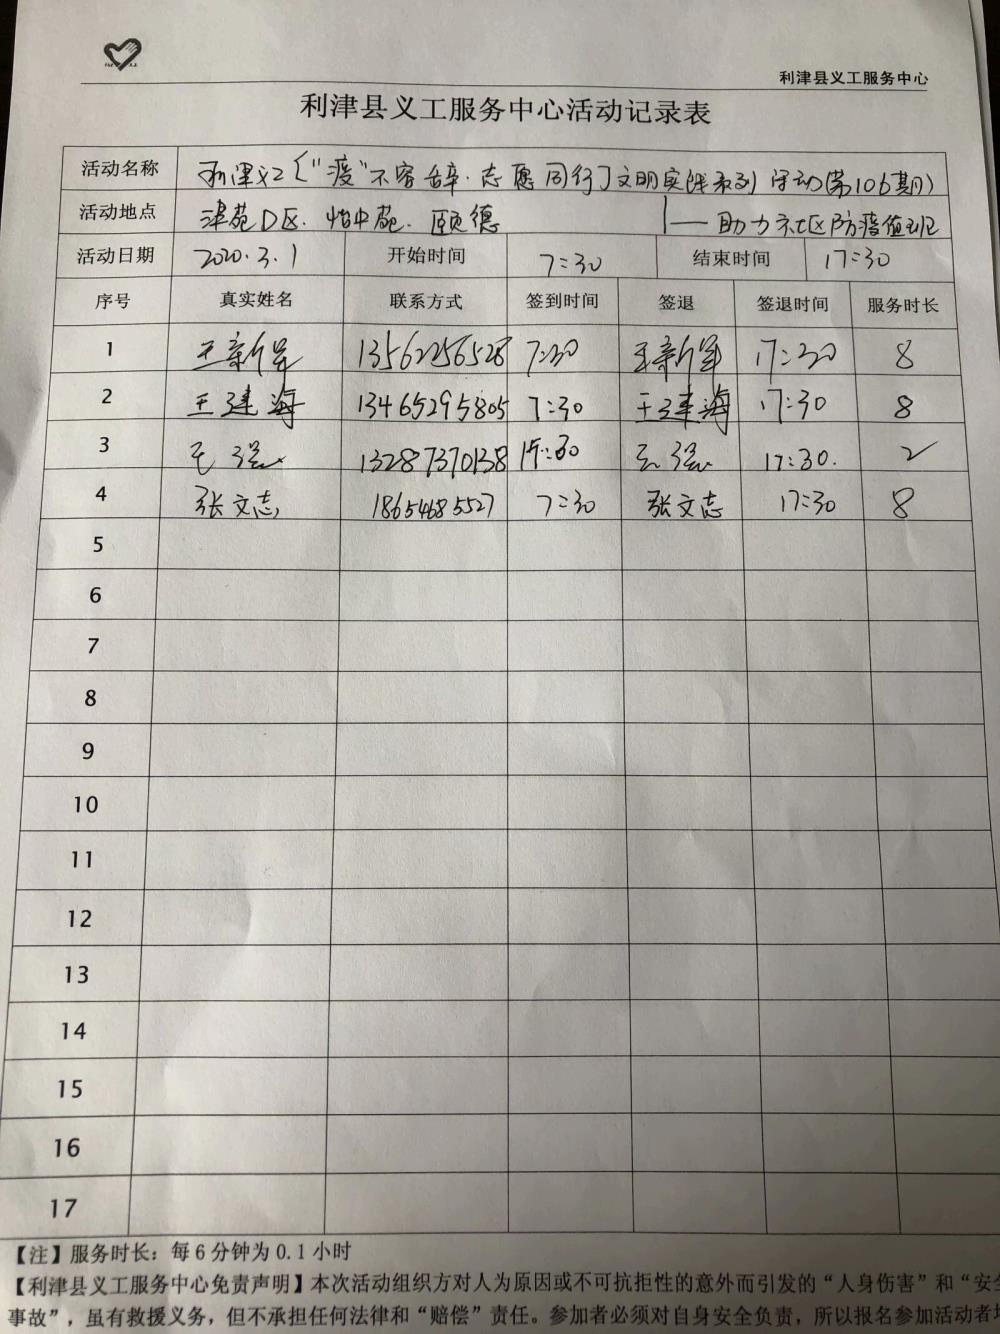 利津县义工服务中心
利津县义工服务中心活动记录表
活动名称 利津义工〔"疫"不容辞·志愿同行〕文明实践系列活动(第106期)
活动地点 津苑D区. 怡中苑. 颐德 ——助力社区防疫值班
活动日期 2020.3.1 开始时间 7:30 结束时间 17:30
序号 真实姓名 联系方式 签到时间 签退 签退时间 服务时长
1 王新军 13562256528 7:30 王新军 17:30 8
2 王建海 13465295805 7:30 王建海 17:30 8
3 强 13287370138 强 17:30. 2
4 张文志 18654685527 7:30 张文志 17:30 8
5
6
7
8
9
10
11
12
13
14
15
16
17
【注】服务时长：每6分钟为0.1小时
【利津县义工服务中心免责声明】本次活动组织方对人为原因或不可抗拒性的意外而引发的“人身伤害”和“安全
事故”，虽有救援义务，但不承担任何法律和“赔偿”责任。参加者必须对自身安全负责，所以报名参加活动者